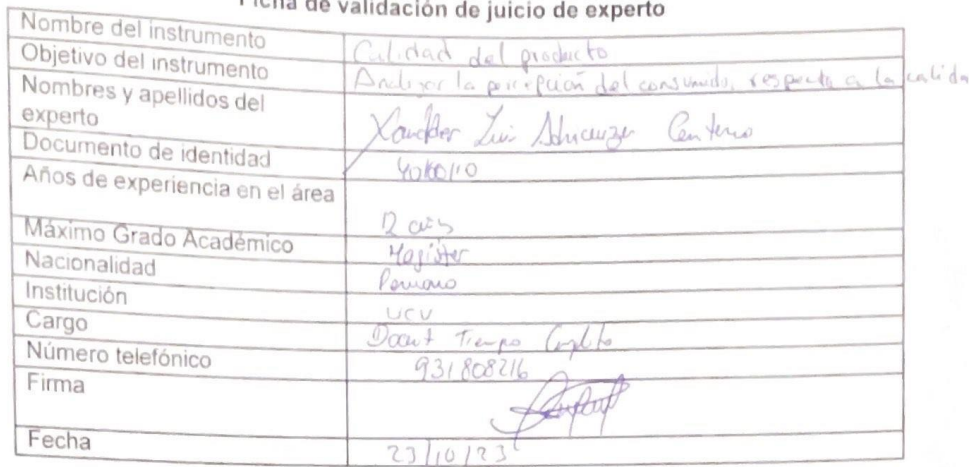 Ficha de validación de juicio de experto
Nombre del instrumento Calidad del producto
Objetivo del instrumento Analizar la percepción del consumidor respecto a la calida
Nombres y apellidos del
experto Luis Centeno
Documento de identidad
Años de experiencia en el área
12 años
Máximo Grado Académico Magister
Nacionalidad Peruano
Institución UCV
Cargo Docent Tiempo Completo
Número telefónico 931808216
Firma
Fecha 23/10/23